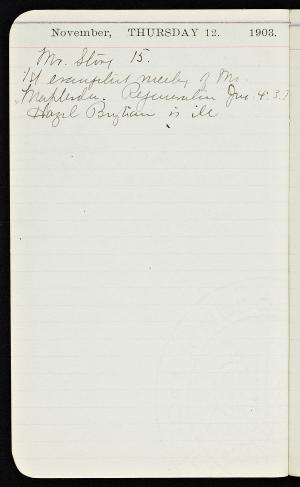 November, THURSDAY 12. 1903.
Mr. Story 15.
1st evangelist meeting of Mr.
Regeneration Jno. 4:3.7
Hazel is ill